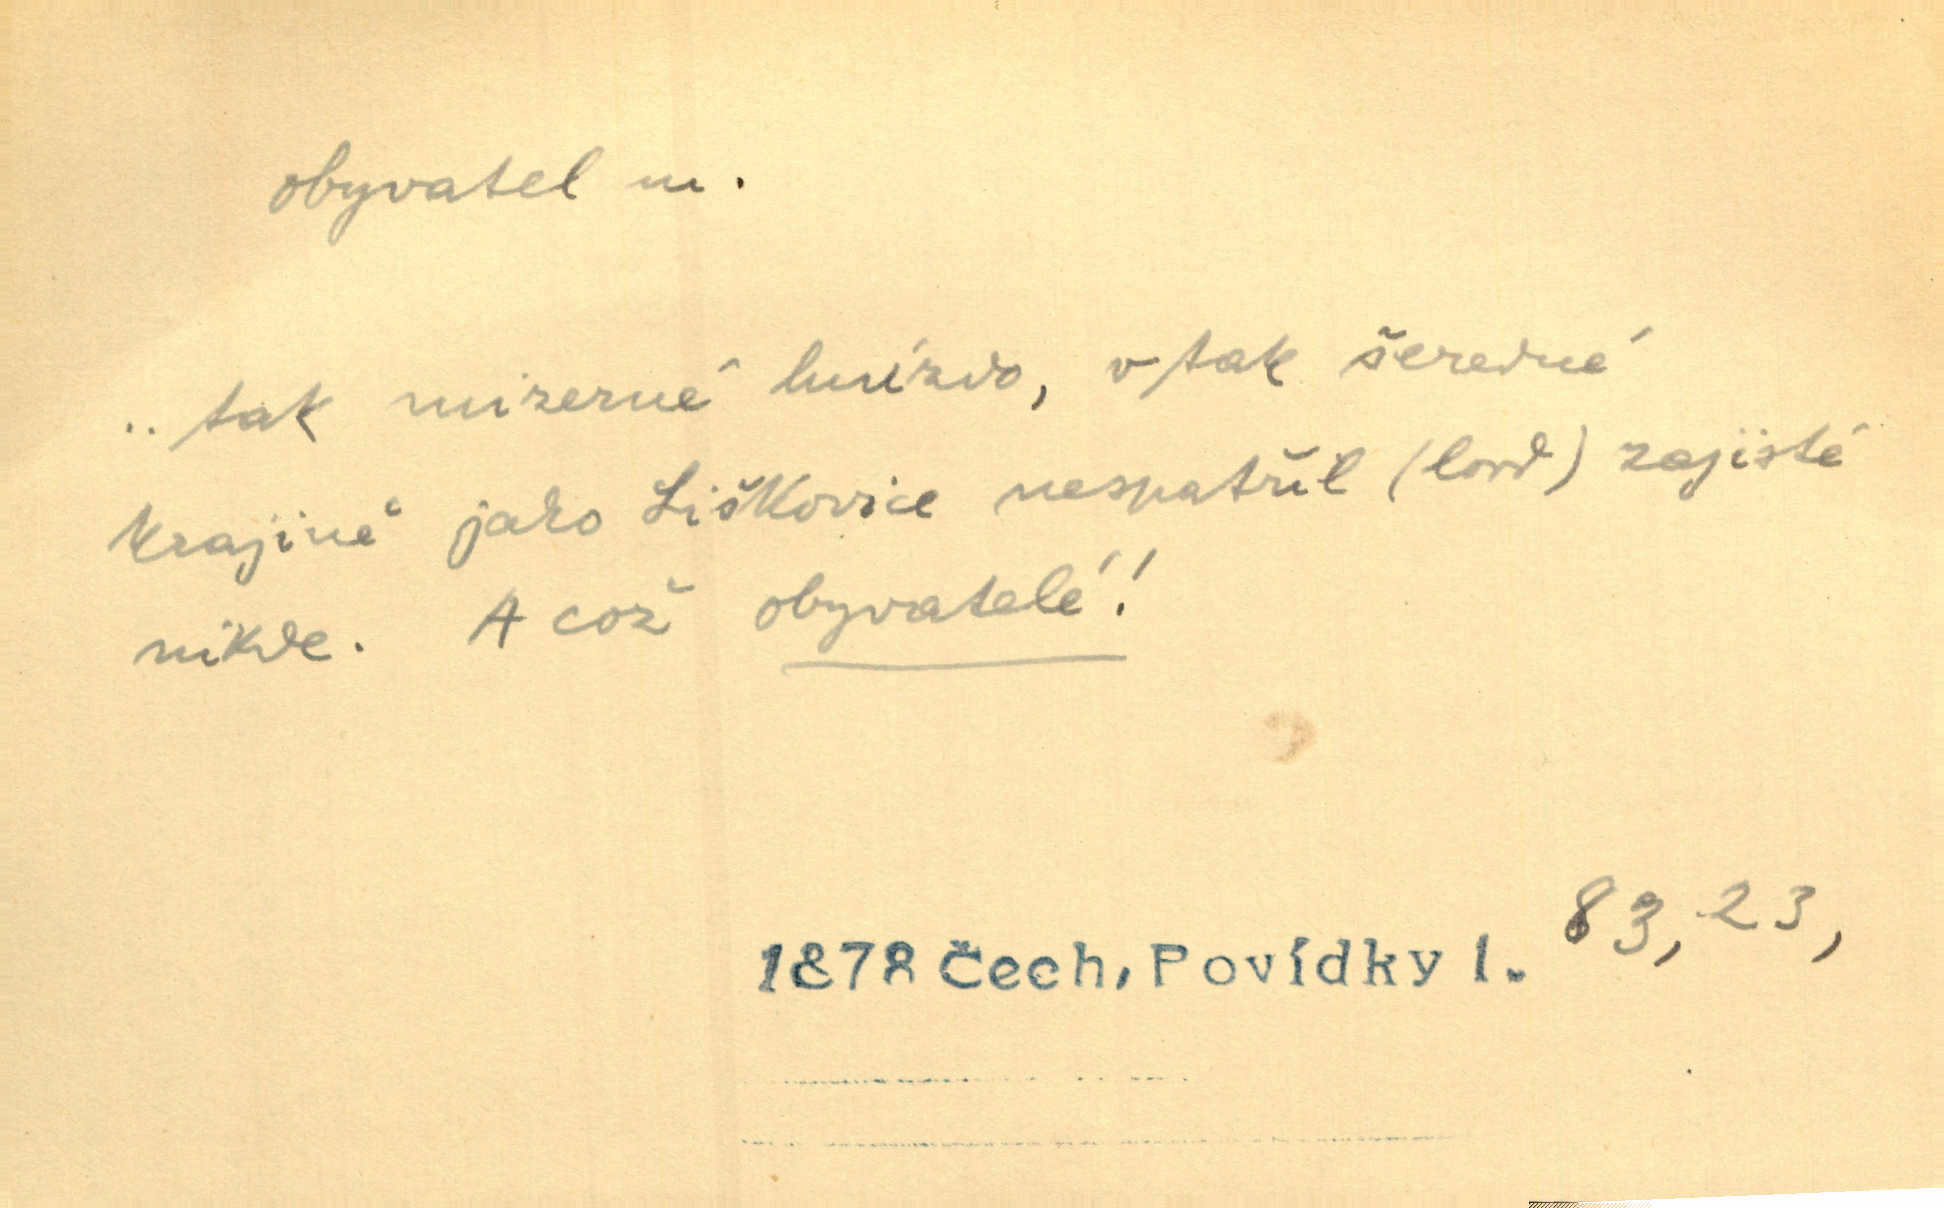 obyvatel m.
.. tak mizerné hnízdo, v tak šeredné
krajině jako Liškovice nespatřil (lord) zajisté
nikde. A což obyvatelé!
1878 Čech, Povídky I. 83, 23,